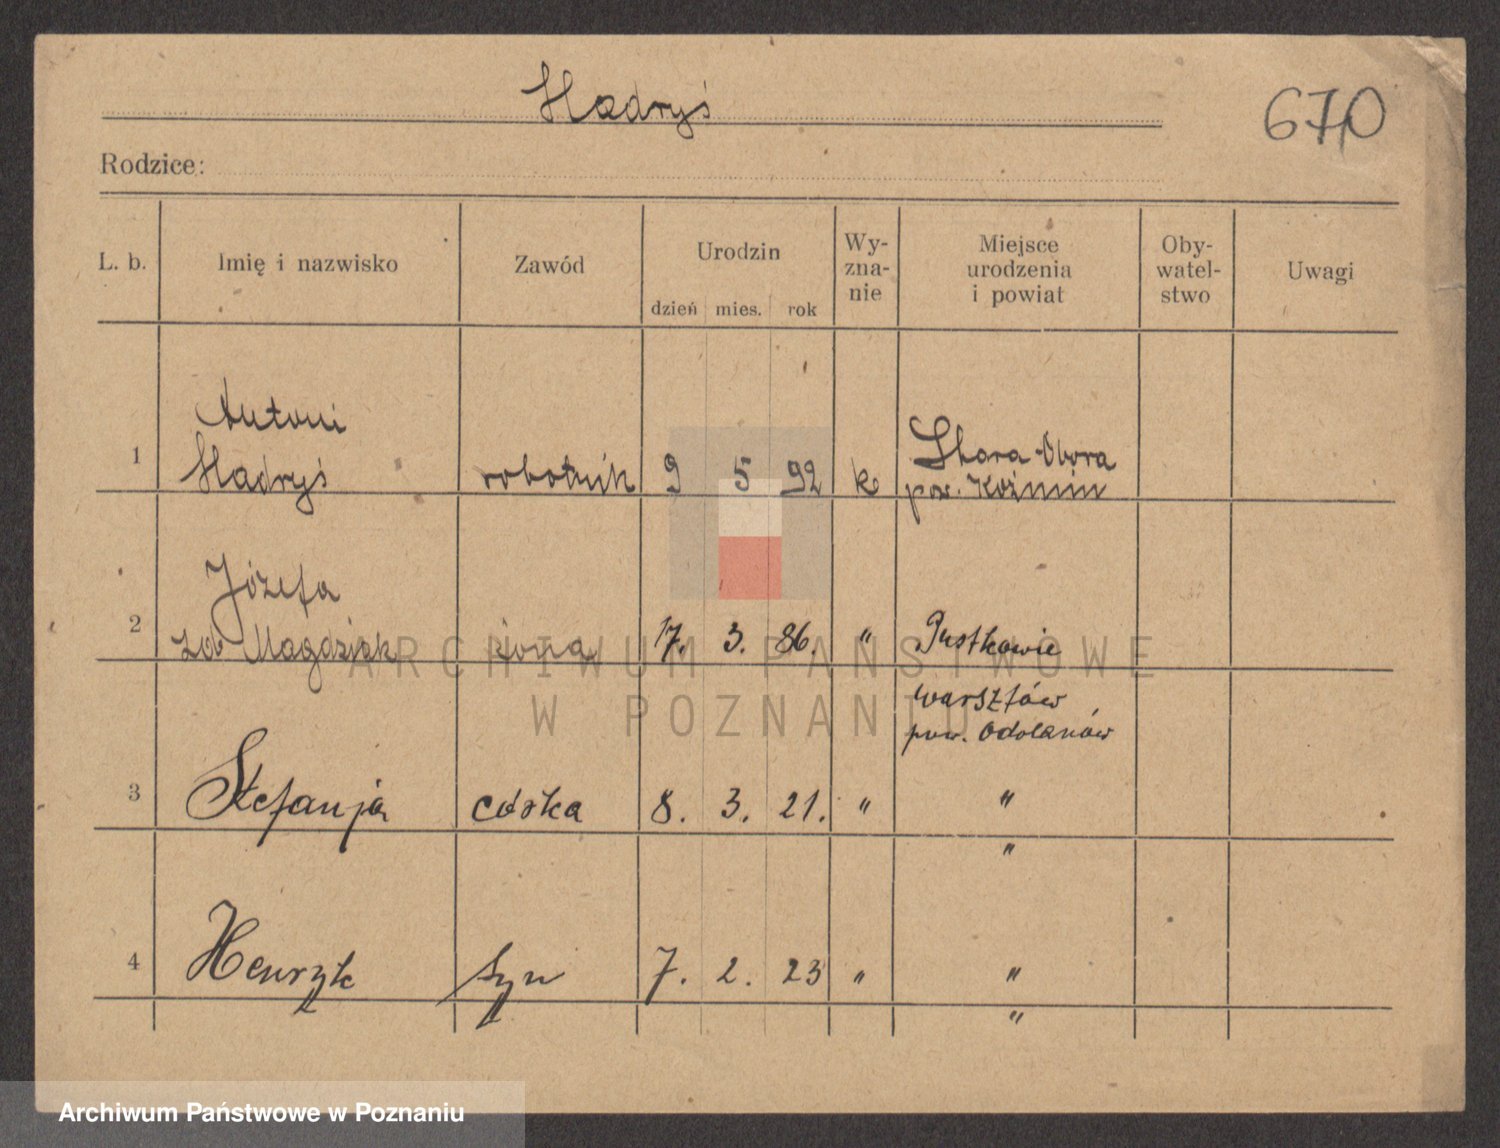 Hadryś
670
Rodzice:
L. b.
Imię i nazwisko
Zawód
Urodzin
dzień mies. rok
Wy-
zna-
nie
Miejsce
urodzenia
i powiat
Oby-
watel-
stwo
Uwagi
Antoni
1 Hadryś robotnik 9 5 92 k Stara-Obora
pow. Koźmin
Józefa
2 Magdziak żona 17. 3. 86. " Pustkowie
warsztów
pow. Odolanów
3 Stefanja córka 8. 3. 21. " "
"
4 Henryk syn 7. 2. 23 " "
"
ARCHIWUM PAŃSTWOWE
W POZNANIU
Archiwum Państwowe w Poznaniu